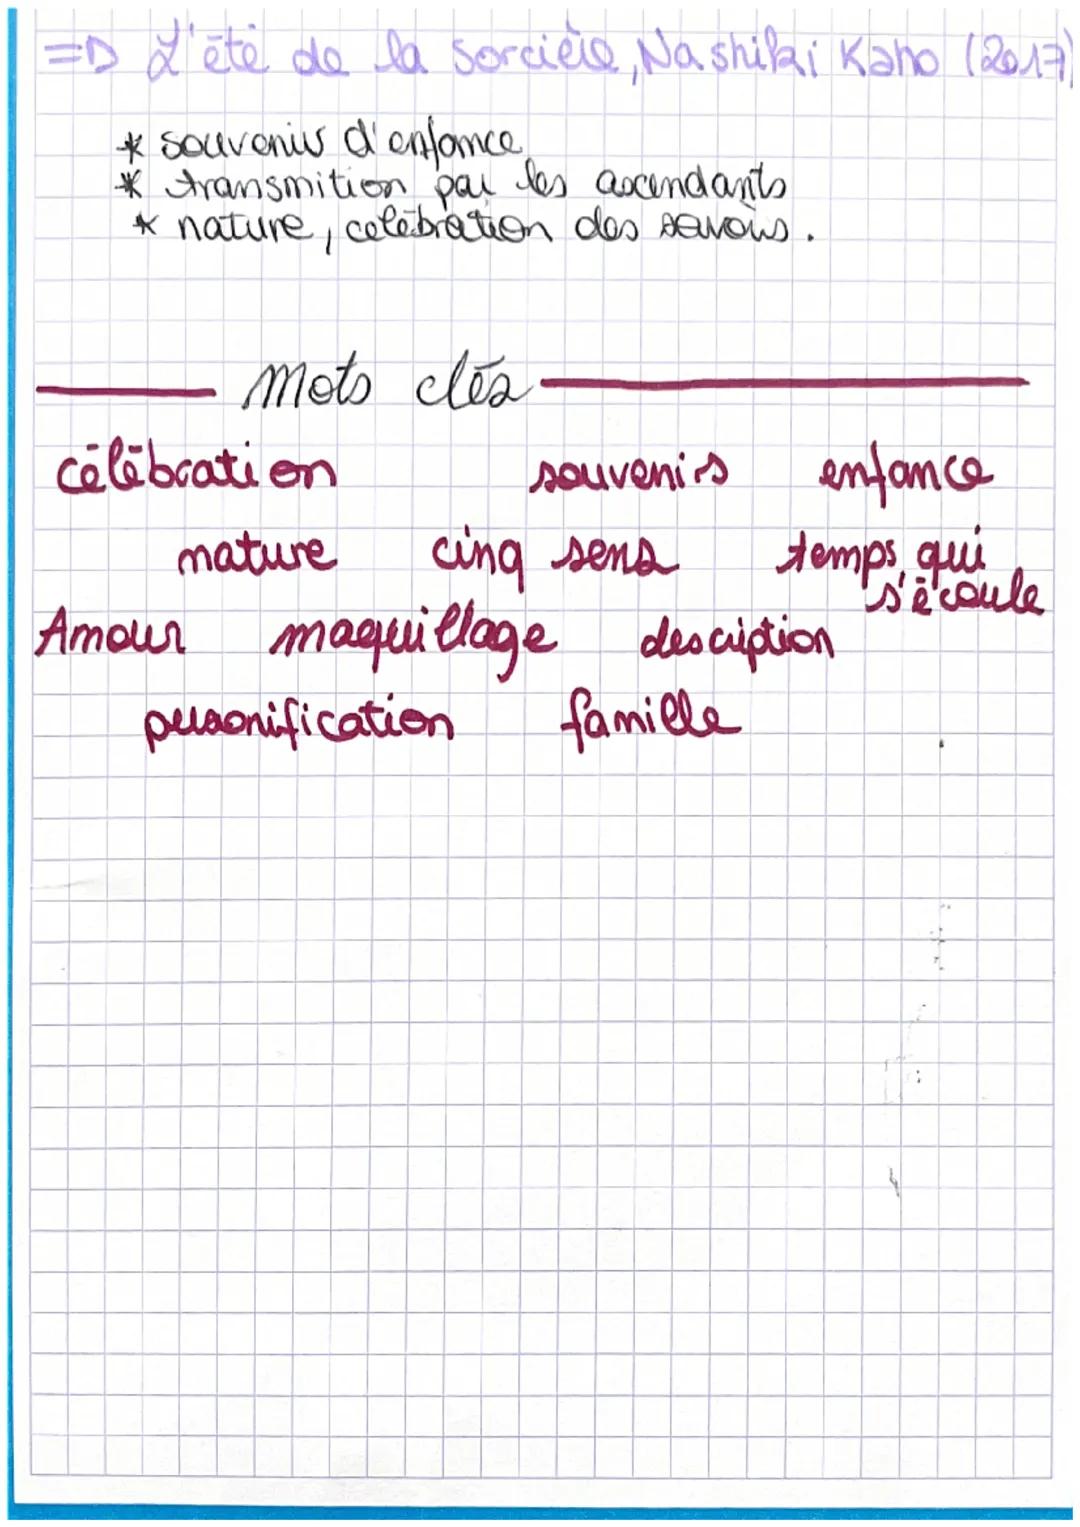 => L'été de la sorcière, Nashiki Kaho (2017)
* souvenir d'enfance
* transmition par les ascendants
* nature, célébration des savoirs.
Mots clés
célébration souvenirs enfance
nature cinq sens temps qui s'écoule
Amour maquillage description
personification famille